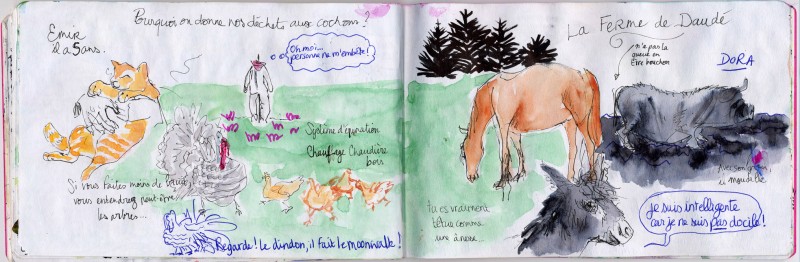 Pourquoi on donne nos déchets aux cochons?
Emir
il a 5 ans.
Oh moi...
personne ne m'embête!
La Ferme de Daudé
n'a pas la
queue en
tire bouchon
DORA
Système d'épuration
Chauffage Chaudière
bois
Si vous faites moins de bruit,
vous entendrez peut-être
les arbres...
Regarde! Le dindon, il fait le moonwalk!
tu es vraiment
têtue comme
une ânesse...
Avec son groin,
Je suis intelligente
car je ne suis pas docile!